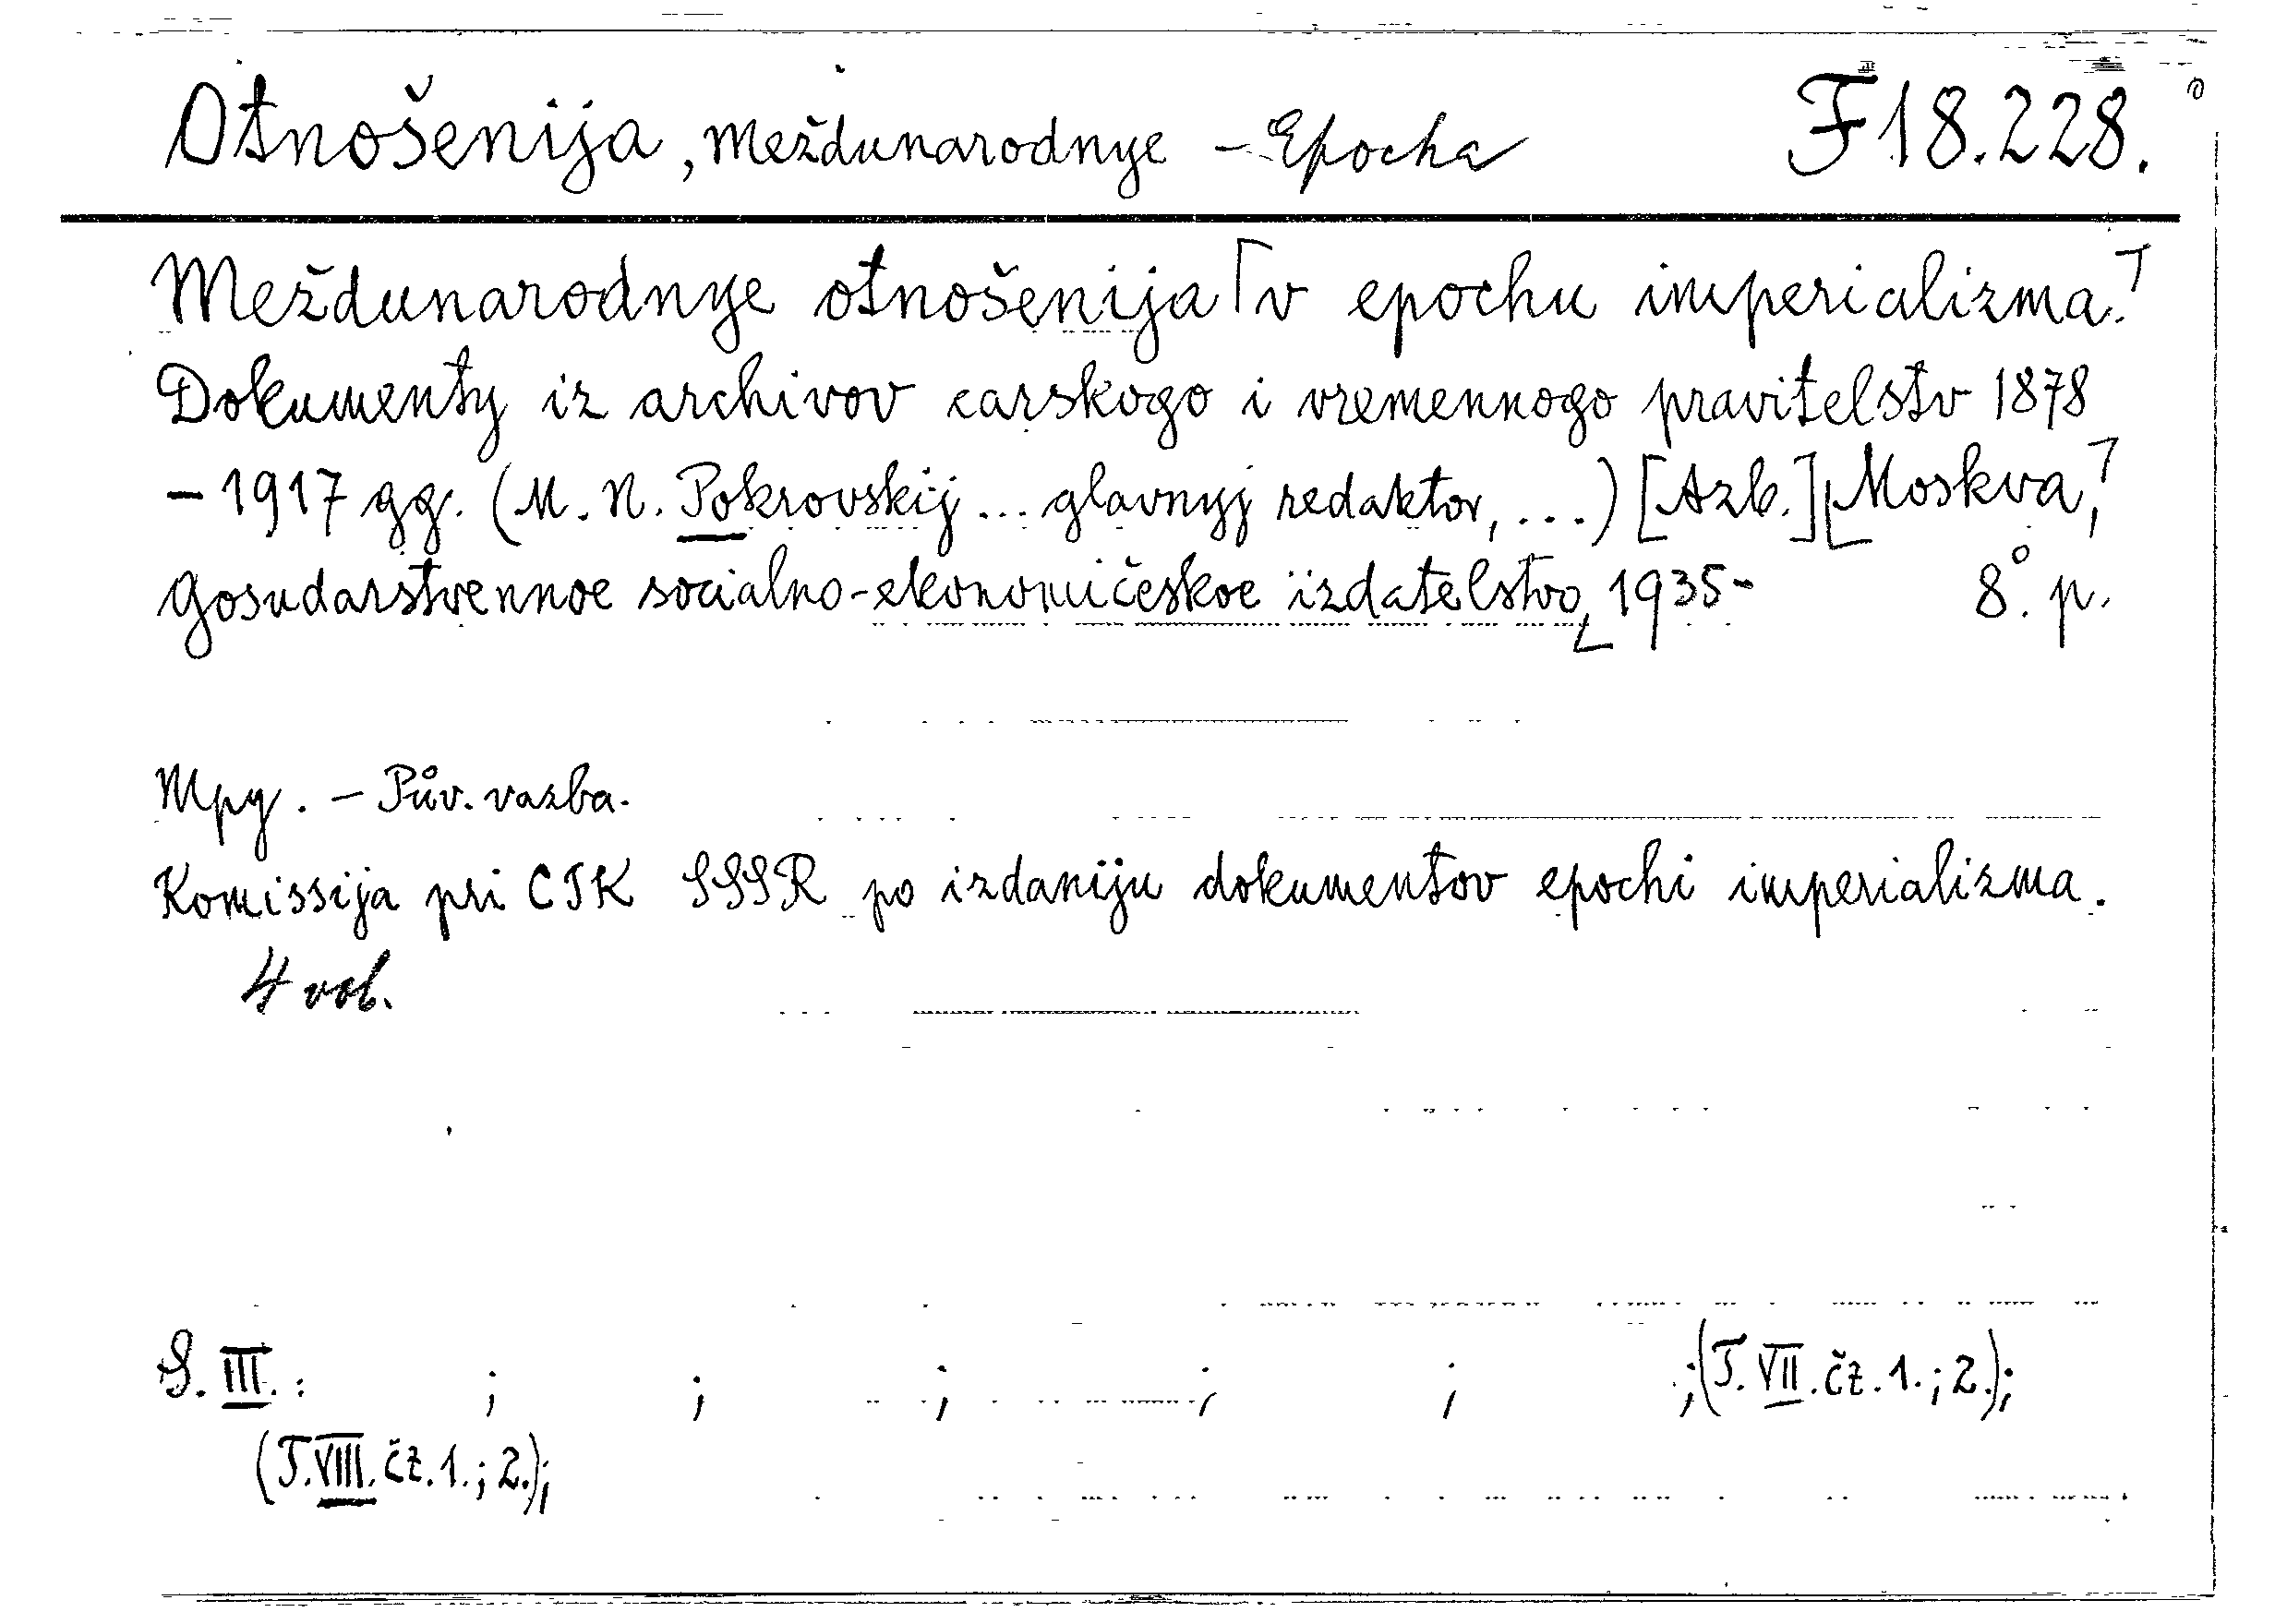 Otnošenija, meždunarodnye - Epocha F 18.228.
Meždunarodnye otnošenija ⌈v epochu imperializma.⌉
Dokumenty iz archivov carskogo i vremennogo pravitelstv 1878
- 1917 gg. (M. N. Pokrovskij ... glavnyj redaktor, ...) [Azb.] ⌊Moskva,⌉
gosudarstvennoe socialno-ekonomičeskoe izdatelstvo, ⌊1935- 8°. p.
Mpg. - Pův. vazba.
Komissija pri CIK SSSR po izdaniju dokumentov epochi imperializma.
4 vol.
S. III. : ; ; ; ; ; ; (T. VII. čz. 1.; 2.);
(T. VIII. čz. 1.; 2.);